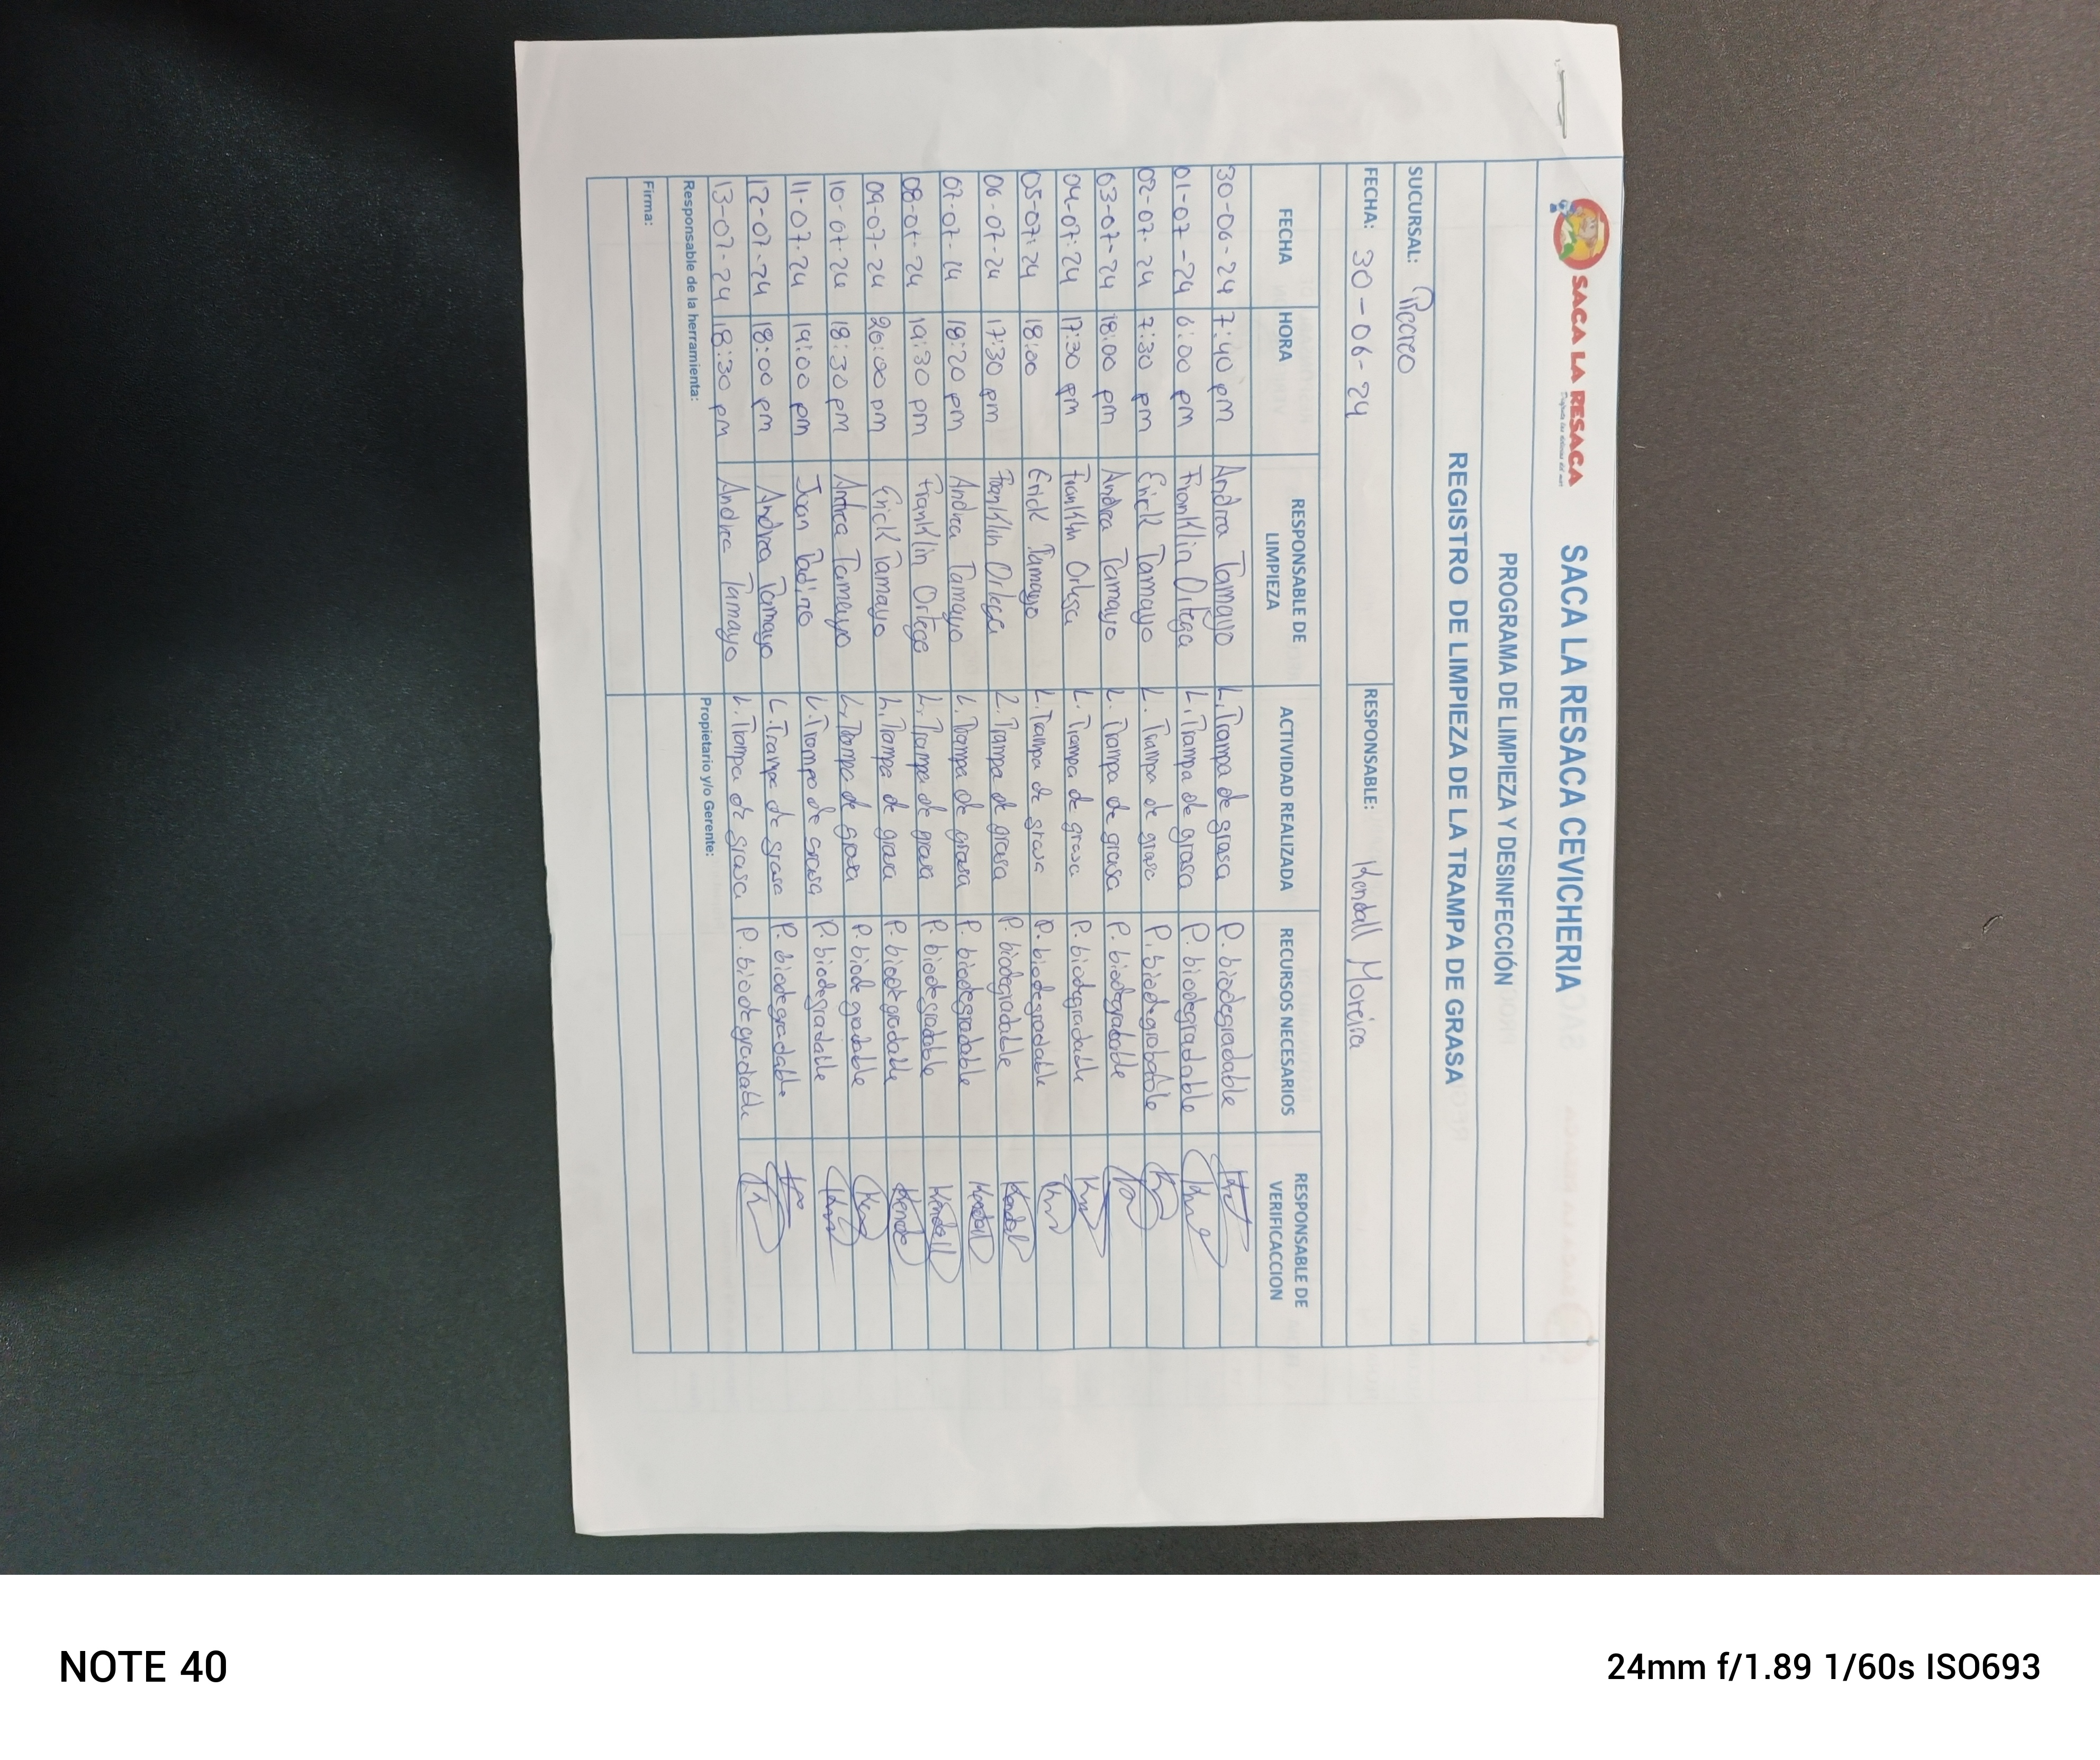 SACA LA RESACA
SACA LA RESACA CEVICHERIA
PROGRAMA DE LIMPIEZA Y DESINFECCIÓN
REGISTRO DE LIMPIEZA DE LA TRAMPA DE GRASA
SUCURSAL: Recreo
FECHA: 30-06-24 RESPONSABLE: Kendall Moreira
FECHA HORA RESPONSABLE DE LIMPIEZA ACTIVIDAD REALIZADA RECURSOS NECESARIOS RESPONSABLE DE VERIFICACCION
30-06-24 7:40 pm Andrea Tamayo L. Trampa de grasa P. biodegradable
01-07-24 6:00 pm Franklin Ortega L. Trampa de grasa P. biodegradable
02-07-24 7:30 pm Erick Tamayo L. Trampa de grasa P. biodegrabable
03-07-24 18:00 pm Andrea Tamayo L. Trampa de grasa P. biodegrabable
04-07-24 17:30 pm Franklin Ortega L. Trampa de grasa P. biodegradable
05-07-24 18:00 Erick Tamayo L. Trampa de grasa P. biodegradable
06-07-24 17:30 pm Franklin Ortega L. Trampa de grasa P. biodegradable Kendall
07-07-24 18:20 pm Andrea Tamayo L. Trampa de grasa P. biodegradable Kendall
08-07-24 19:30 pm Franklin Ortega L. Trampa de grasa P. biodegradable Kendall
09-07-24 20:00 pm Erick Tamayo L. Trampa de grasa P. biodegradable
10-07-24 18:30 pm Andrea Tamayo L. Trampa de grasa P. biodegradable
11-07-24 19:00 pm Juan L. Trampa de grasa P. biodegradable
12-07-24 18:00 pm Andrea Tamayo L. Trampa de grasa P. biodegradable
13-07-24 18:30 pm Andrea Tamayo L. Trampa de grasa P. biodegradable
Responsable de la herramienta: Propietario y/o Gerente:
Firma:
NOTE 40 24mm f/1.89 1/60s ISO693